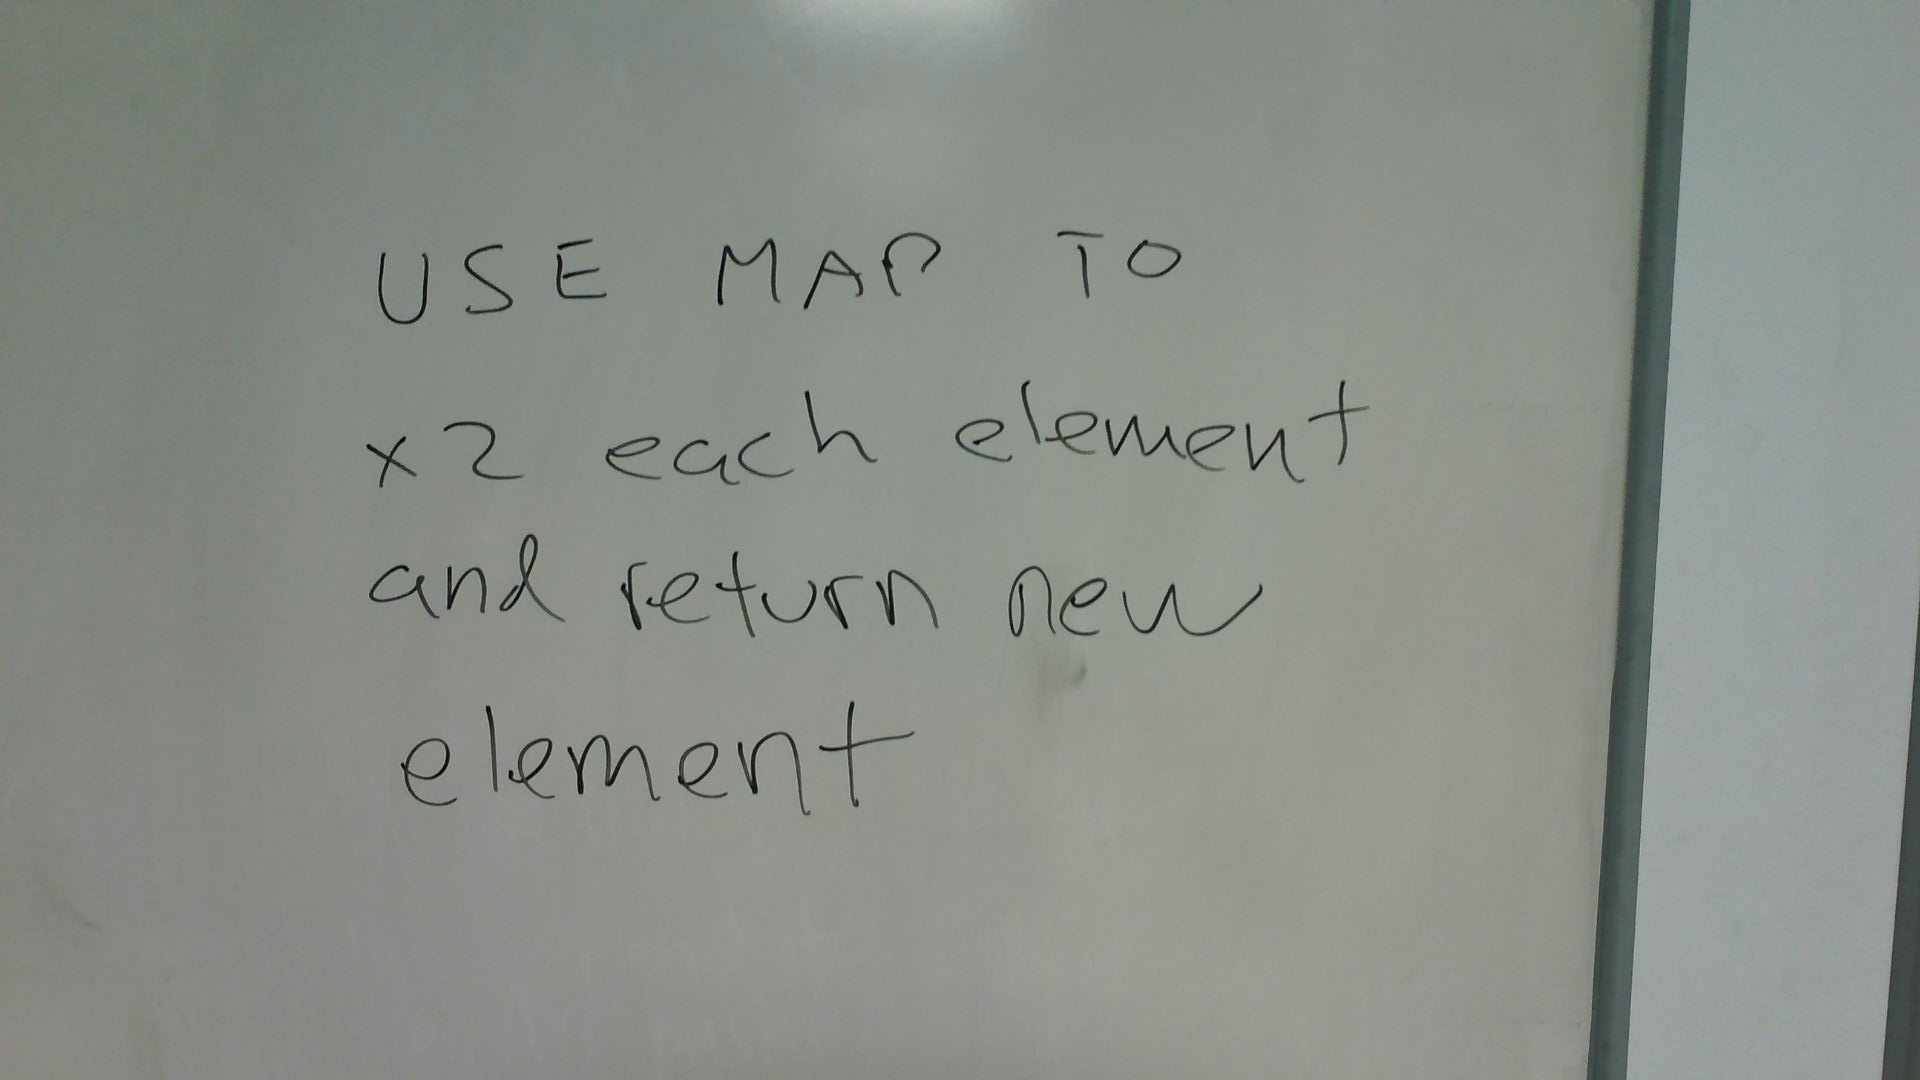 USE MAP TO
x2 each element
and return new
element